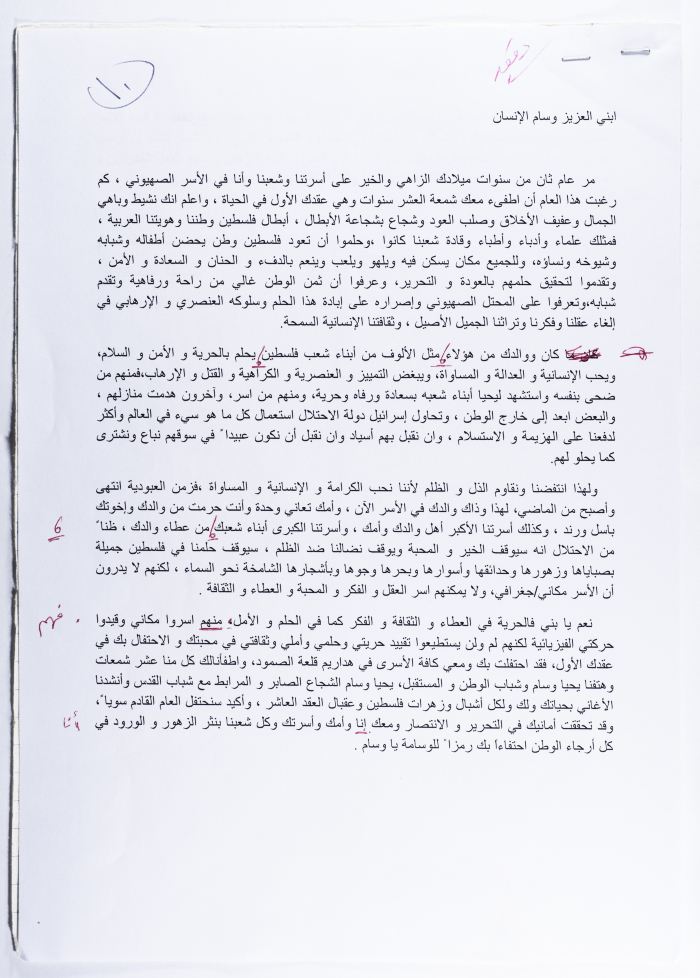 ١٠
ابني العزيز وسام الإنسان
مر عام ثان من سنوات ميلادك الزاهي والخير على أسرتنا وشعبنا وأنا في الأسر الصهيوني ، كم
رغبت هذا العام أن اطفىء معك شمعة العشر سنوات وهي عقدك الأول في الحياة ، واعلم انك نشيط وباهي
الجمال وعفيف الأخلاق وصلب العود وشجاع بشجاعة الأبطال ، أبطال فلسطين وطننا وهويتنا العربية ،
فمثلك علماء وأدباء وأطباء وقادة شعبنا كانوا ،وحلموا أن تعود فلسطين وطن يحضن أطفاله وشبابه
وشيوخه ونساؤه، وللجميع مكان يسكن فيه ويلهو ويلعب وينعم بالدفء و الحنان و السعادة و الأمن ،
وتقدموا لتحقيق حلمهم بالعودة و التحرير، وعرفوا أن ثمن الوطن غالي من راحة ورفاهية وتقدم
شبابه،وتعرفوا على المحتل الصهيوني وإصراره على إبادة هذا الحلم وسلوكه العنصري و الإرهابي في
إلغاء عقلنا وفكرنا وتراثنا الجميل الأصيل ، وثقافتنا الإنسانية السمحة.
كان ووالدك من هؤلاء مثل الألوف من أبناء شعب فلسطين يحلم بالحرية و الأمن و السلام،
ويحب الإنسانية و العدالة و المساواة، ويبغض التمييز و العنصرية و الكراهية و القتل و الإرهاب،فمنهم من
ضحى بنفسه واستشهد ليحيا أبناء شعبه بسعادة ورفاه وحرية، ومنهم من اسر، وآخرون هدمت منازلهم ،
والبعض ابعد إلى خارج الوطن ، وتحاول إسرائيل دولة الاحتلال استعمال كل ما هو سيء في العالم وأكثر
لدفعنا على الهزيمة و الاستسلام ، وان نقبل بهم أسياد وان نقبل أن نكون عبيدا ً في سوقهم نباع ونشترى
كما يحلو لهم.
ولهذا انتفضنا ونقاوم الذل و الظلم لأننا نحب الكرامة و الإنسانية و المساواة ،فزمن العبودية انتهى
وأصبح من الماضي، لهذا وذاك والدك في الأسر الآن ، وأمك تعاني وحدة وأنت حرمت من والدك وإخوتك
باسل ورند ، وكذلك أسرتنا الأكبر أهل والدك وأمك ، وأسرتنا الكبرى أبناء شعبك من عطاء والدك ، ظنا ً
من الاحتلال انه سيوقف الخير و المحبة ويوقف نضالنا ضد الظلم ، سيوقف حلمنا في فلسطين جميلة
بصباياها وزهورها وحدائقها وأسوارها وبحرها وجوها وبأشجارها الشامخة نحو السماء ، لكنهم لا يدرون
أن الأسر مكاني/جغرافي، ولا يمكنهم اسر العقل و الفكر و المحبة و العطاء و الثقافة .
نعم يا بني فالحرية في العطاء و الثقافة و الفكر كما في الحلم و الأمل، منهم اسروا مكاني وقيدوا
فهم
حركتي الفيزيائية لكنهم لم ولن يستطيعوا تقييد حريتي وحلمي وأملي وثقافتي في محبتك و الاحتفال بك في
عقدك الأول، فقد احتفلت بك ومعي كافة الأسرى في هداريم قلعة الصمود، واطفأنالك كل منا عشر شمعات
وهتفنا يحيا وسام وشباب الوطن و المستقبل، يحيا وسام الشجاع الصابر و المرابط مع شباب القدس وأنشدنا
الأغاني بحياتك ولك ولكل أشبال وزهرات فلسطين وعقبال العقد العاشر ، وأكيد سنحتفل العام القادم سويا ً،
وقد تحققت أمانيك في التحرير و الانتصار ومعك إنا وأمك وأسرتك وكل شعبنا بنثر الزهور و الورود في
أنا
كل أرجاء الوطن احتفاءا بك رمزا ً للوسامة يا وسام .